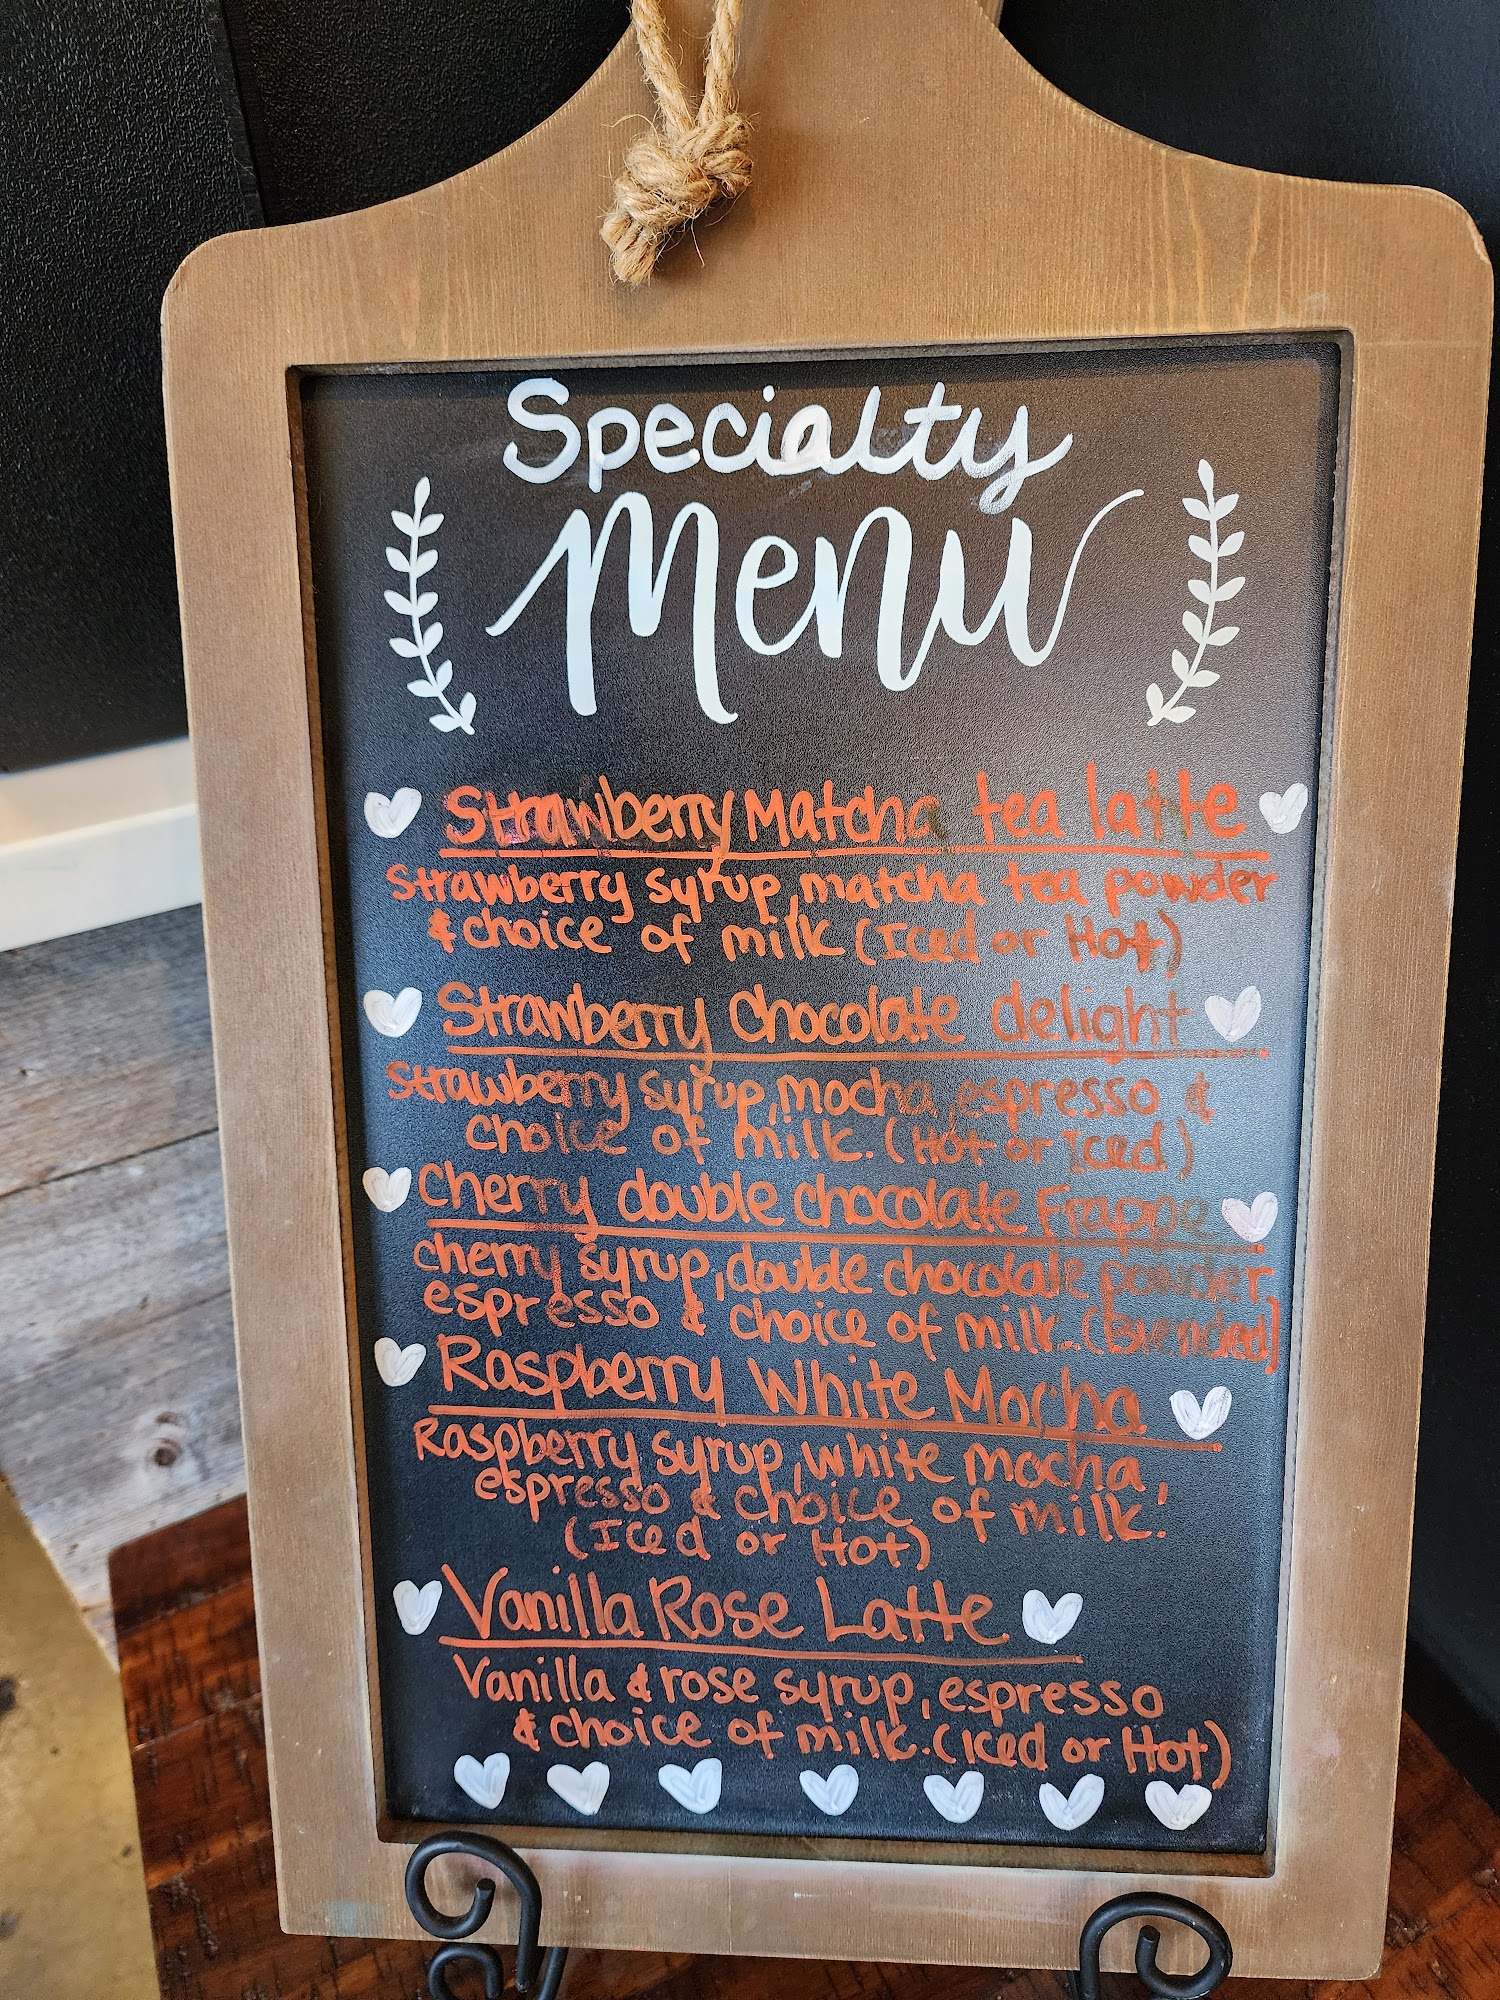 Specialty
Menu
Strawberry Matcha tea latte
Strawberry syrup, matcha tea powder
& choice of milk (Iced or Hot)
Strawberry Chocolate delight
Strawberry syrup, mocha, espresso &
choice of milk. (Hot or Iced)
Cherry double chocolate Frappe
cherry syrup, double chocolate powder,
espresso & choice of milk. (Blended)
Raspberry White Mocha
Raspberry syrup, white mocha,
espresso & choice of milk.
(Iced or Hot)
Vanilla Rose Latte
Vanilla & rose syrup, espresso
& choice of milk. (Iced or Hot)